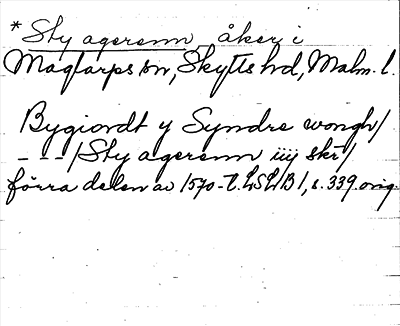 * Sty agerenn, åker i
Maglarps sn, Skytts hd, Malm. l.
Bygiordt y Syndre wongh/
- - -/Sty agerenn iiij skr/
förra delen av 1570-t. LSLJB 1, s. 339. orig.